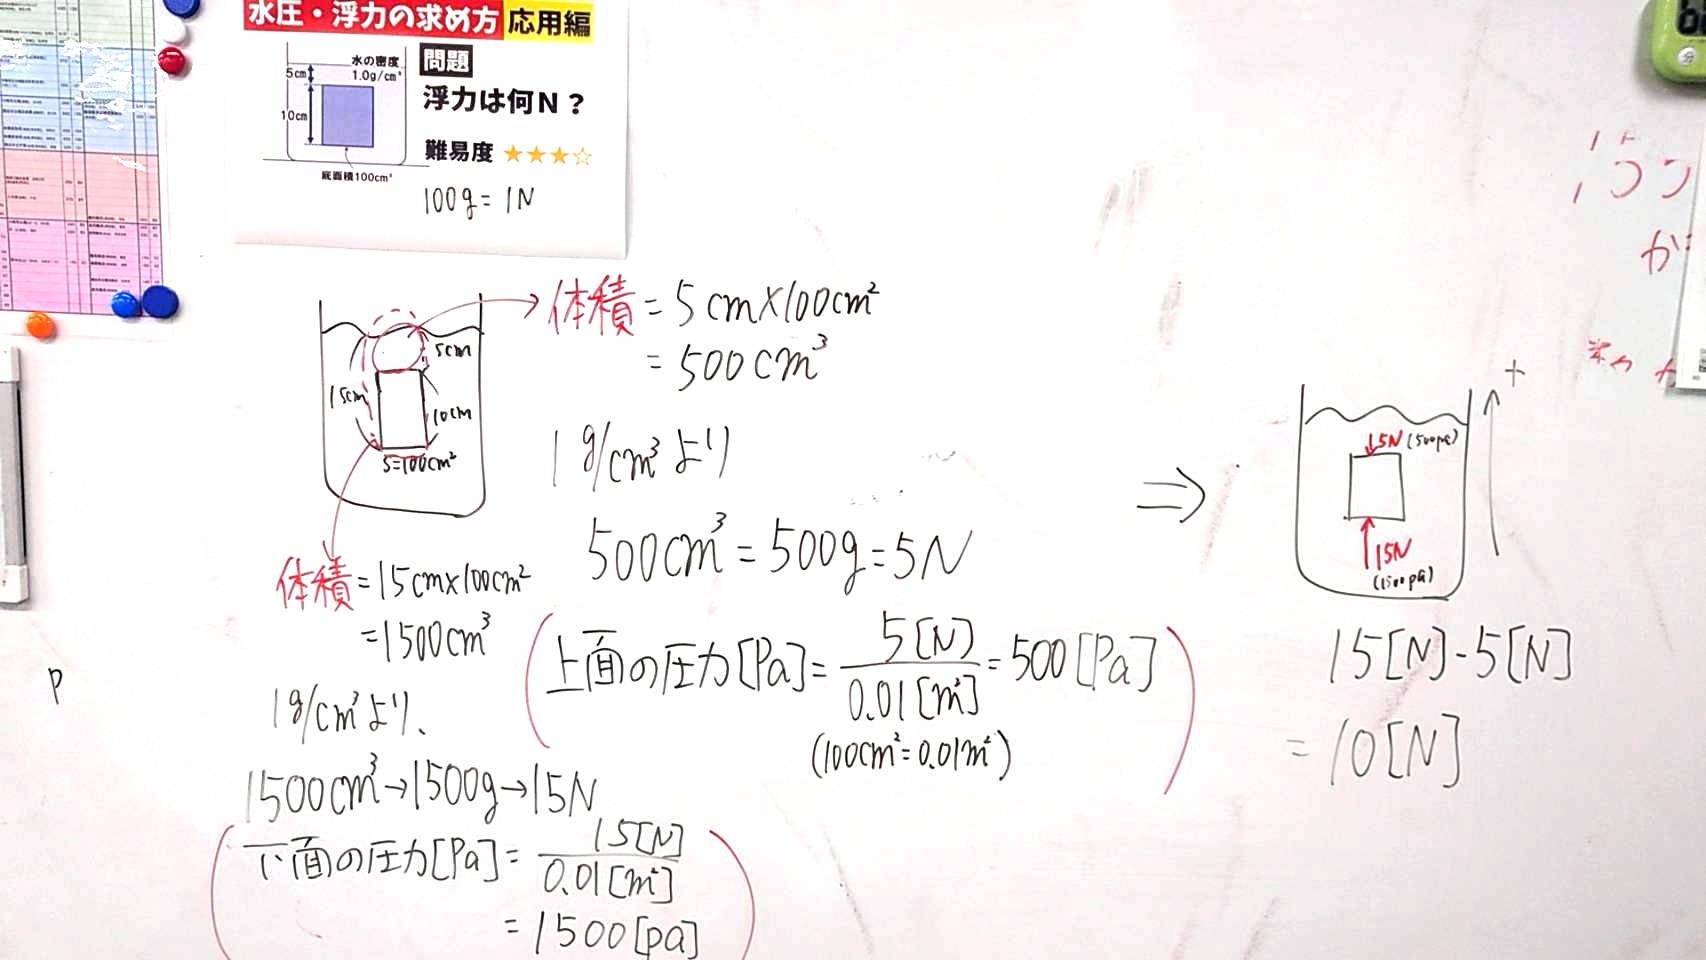 水圧・浮力の求め方 応用編
水の密度
1.0g/cm³
5cm
10cm
底面積100cm²
問題
浮力は何N？
難易度 ★★★☆
100g = 1N
5cm
15cm
10cm
S=100cm²
体積 = 5cm×100cm²
= 500cm³
1g/cm³より
500cm³ = 500g = 5N
上面の圧力[Pa] = 5[N] / 0.01[m²] = 500[Pa]
(100cm² = 0.01m²)
体積 = 15cm×100cm²
= 1500cm³
1g/cm³より、
1500cm³→1500g→15N
下面の圧力[Pa] = 15[N] / 0.01[m²]
= 1500[pa]
P
⇒
+
↓5N (500pa)
↑15N
(1500pa)
15[N] - 5[N]
= 10[N]
か